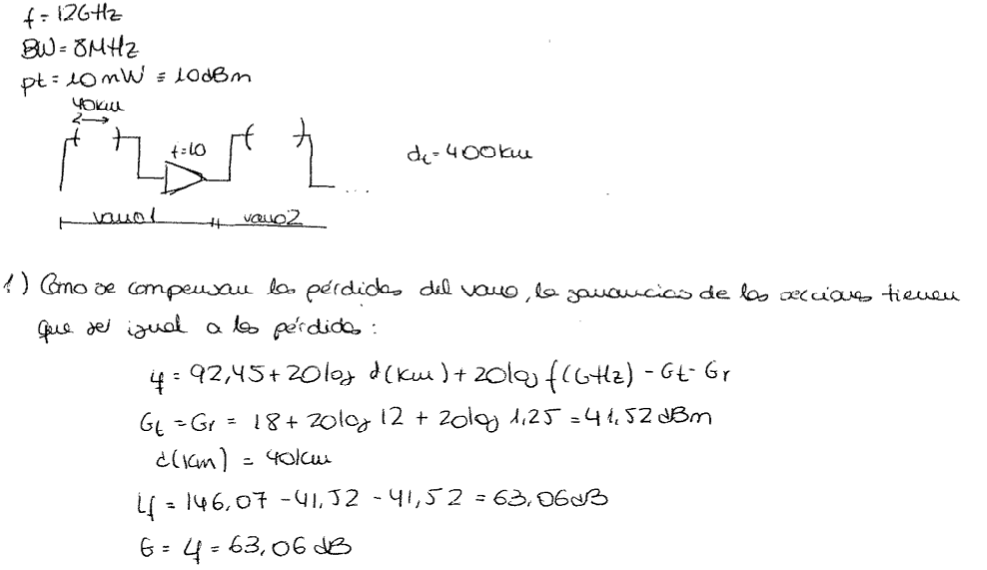 f = 12GHz
BW = 8MHz
pt = 10mW ≡ 10dBm
40km
f=10
dc = 400km
...
vano1
vano2
1) Como se compensan las pérdidas del vano, la ganancias de las secciones tienen
que ser igual a las pérdidas:
Lf = 92,45 + 20log d(km) + 20log f(GHz) - Gt - Gr
Gt = Gr = 18 + 20log 12 + 20log 1,25 = 41,52 dBm
d(km) = 40km
Lf = 146,07 - 41,52 - 41,52 = 63,06dB
G = Lf = 63,06 dB